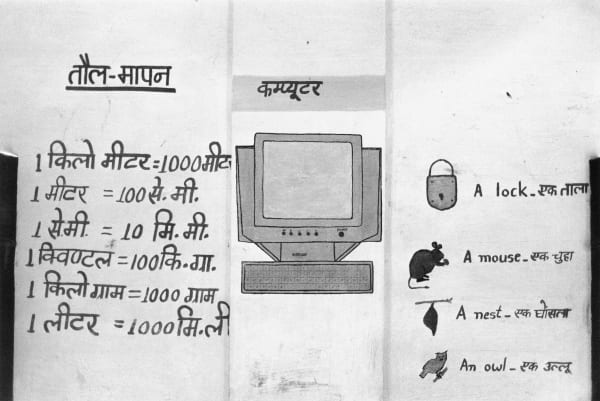 तौल-मापन
1 किलो मीटर=1000मीट
1 मीटर = 100से.मी.
1 से.मी = 10 मि.मी.
1 क्विण्टल=100कि.गा.
1 किलोग्राम=1000 ग्राम
1 लीटर =1000मि.ली
कम्प्यूटर
A lock-एक ताला
A mouse-एक चुहा
A nest-एक घोसला
An owl-एक उल्लू